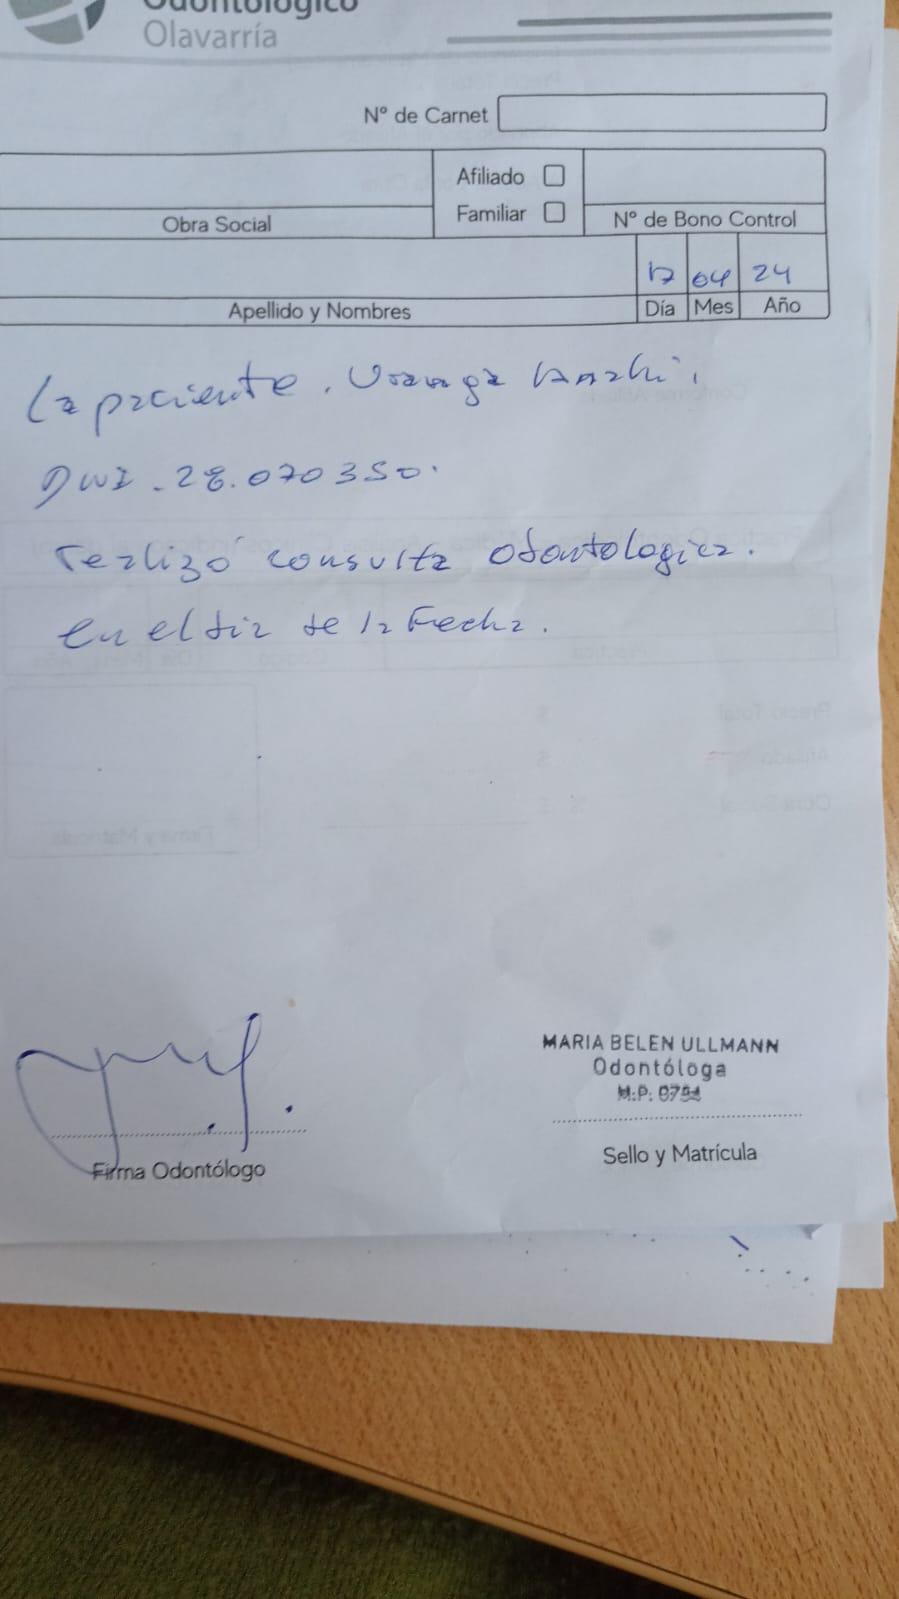 Odontológico
Olavarría
Nº de Carnet
Afiliado
Familiar
Obra Social
Nº de Bono Control
17 04 24
Apellido y Nombres
Día Mes Año
La paciente. Uranga
DNI. 28.070350.
realizó consulta odontologica.
en el dia de la Fecha.
MARIA BELEN ULLMANN
Odontóloga
M.P.
Firma Odontólogo
Sello y Matrícula